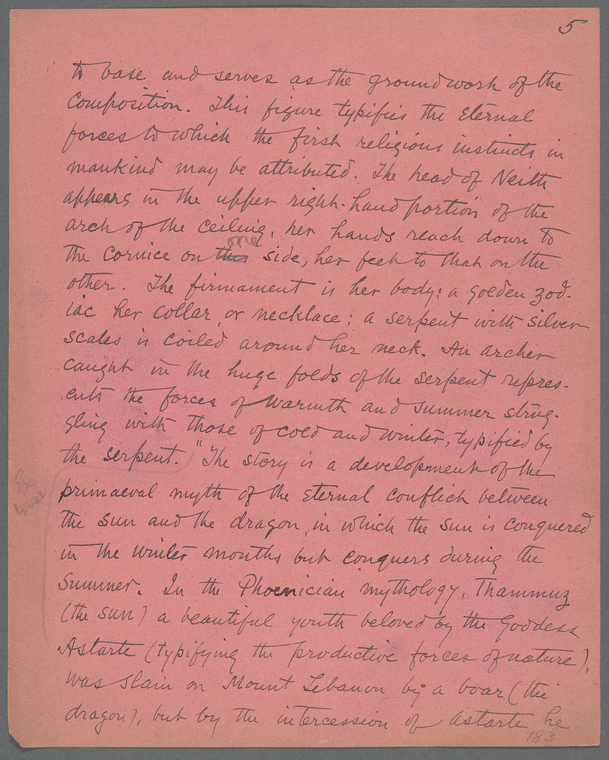 5
to base and serves as the groundwork of the
composition. This figure typifies the Eternal
forces to which the first religious instincts in
mankind may be attributed. The head of Neith
appears in the upper right-hand portion of the
arch of the ceiling, her hands reach down to
one
the cornice on this side, her feet to that on the
other. The firmament is her body: a golden zod-
iac her collar, or necklace: a serpent with silver
scales is coiled around her neck. An archer
caught in the huge folds of the serpent repres-
ents the forces of warmth and summer strug-
gling with those of cold and winter, typified by
the serpent. "The story is a development of the
primaeval myth of the eternal conflict between
the sun and the dragon, in which the sun is conquered
in the winter months but conquers during the
summer. In the Phoenician mythology, Thammuz
(the sun) a beautiful youth beloved by the Goddess
Astarte (typifying the productive forces of nature),
was slain on Mount Lebanon by a boar (the
dragon), but by the intercession of Astarte he
183